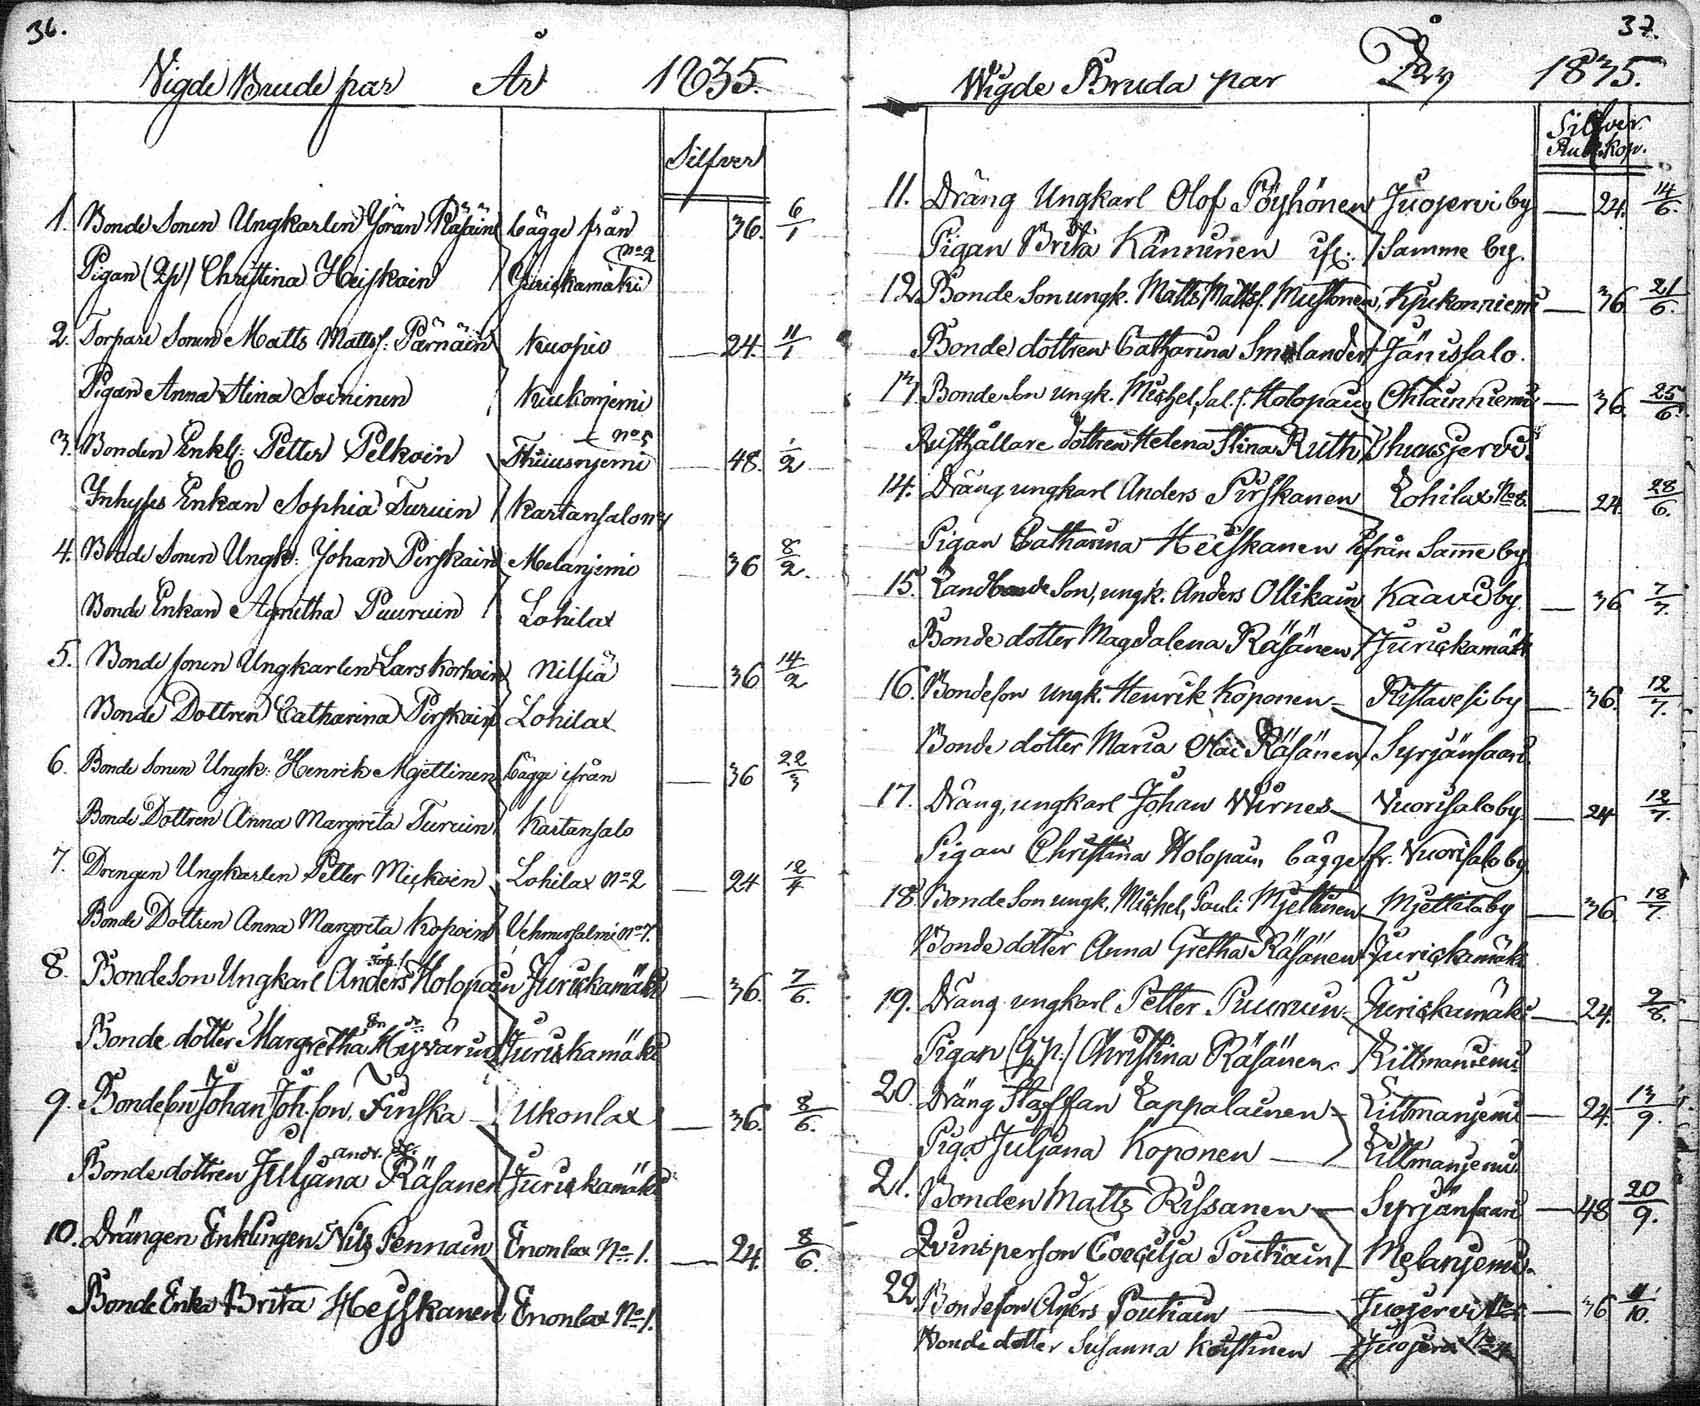 36.
Vigde Brude par År 1835.
Silfver
1. Bonde Sonen Ungkarlen Jöran Räsäin bägge från 36. 6/1
Pigan (Qp) Christina Heiskain Juriskamäki No 2
2. Torpare Sonen Matts Matts: Pärnäin Kuopio 24. 11/1
Pigan Anna Stina Soininen Kiukonjemi
3. Bonden Enkl: Petter Pelkoin No 5 48. 1/2
Inhyses Enkan Sophia Turuin Kartansalo
4. Bonde Sonen Ungk: Johan Pirskain Melanjemi 36 8/2.
Bonde Enkan Agnetha Puuruin Lohilax
5. Bonde sonen Ungkarlen Lars Korhoin Nilsiä 36 14/2
Bonde Dottren Catharina Pirskain Lohilax
6. Bonde Sonen Ungk: Henrik Mjettinen bägge ifrån 36 22/3
Bonde Dottren Anna Margreta Turuin Kartansalo
7. Drengen Ungkarlen Petter Mickoin Lohilax No 2 24 12/4
Bonde Dottren Anna Margreta Kopoin Vehmersalmi No 7.
8. Bonde Son Ungkarl Anders Holopain Juriskamäki 36. 7/6.
Bonde dotter Margretha Hyvärin Juriskamäki
9. Bondeson Johan Joh. son. Finska Ukonlax 36. 8/6.
Bonde dottren Juljana Räsänen Juriskamäki
10. Drängen Enklingen Nils Pennain Enonlax No 1. 24. 8/6.
Bonde Enka Brita Hejskanen Enonlax No 1.
37.
Wigde Bruda par År 1835.
Silfver
Rub. kop.
11. Dräng Ungkarl Olof Pöyhönen Juojervi by 24. 14/6.
Pigan Brita Känninen Samme by.
12. Bonde Son ungk. Matts Matts. Mustonen, Kjukonniemi 36 21/6.
Bonde dottren Catharina Smelander Jänissalo.
13. Bonde Son ungk. Michel Sal. s. Holopain 36. 25/6.
Rusthållare dottren Helena Stina Ruth
14. Dräng ungkarl Anders Pirskanen Lohilax No 8. 24. 28/6.
Pigan Catharina Heiskanen ifrån Samme by
15. Landbonde Son, ungk. Anders Ollikain Kaavi by. 36 7/7.
Bonde dotter Magdalena Räsänen Juriskamäki
16. Bondeson ungk. Henrik Koponen Ristavesi by 36. 12/7.
Bonde dotter Maria Räsänen Syrjänsaari
17. Dräng, ungkarl Johan Wirnes Vuorisalo by. 24 12/7.
Pigan Christina Holopain bägge fr. Vuorisalo by
18. Bonde Son ungk. Michel, Pauli Mjettinen Mjettila by 36. 18/7.
Bonde dotter Anna Gretha Räsänen Juriskamäki
19. Dräng ungkarl Petter Puuruin Juriskamäki 24. 2/8.
Pigan (Qp.) Christina Räsänen Littmaniemi
20. Dräng Staffan Lappalainen Littmanjemi 24. 13/9.
Piga Juljana Koponen Littmanjemi
21. Bonden Matts Rissanen Syrjänsaari 48 20/9.
Qvinsperson Coecilja Poutiain Melanjemi
22. Bondeson Anders Poutiain Juojervi 36 11/10.
Bonde dotter Susanna Koistinen Juojervi